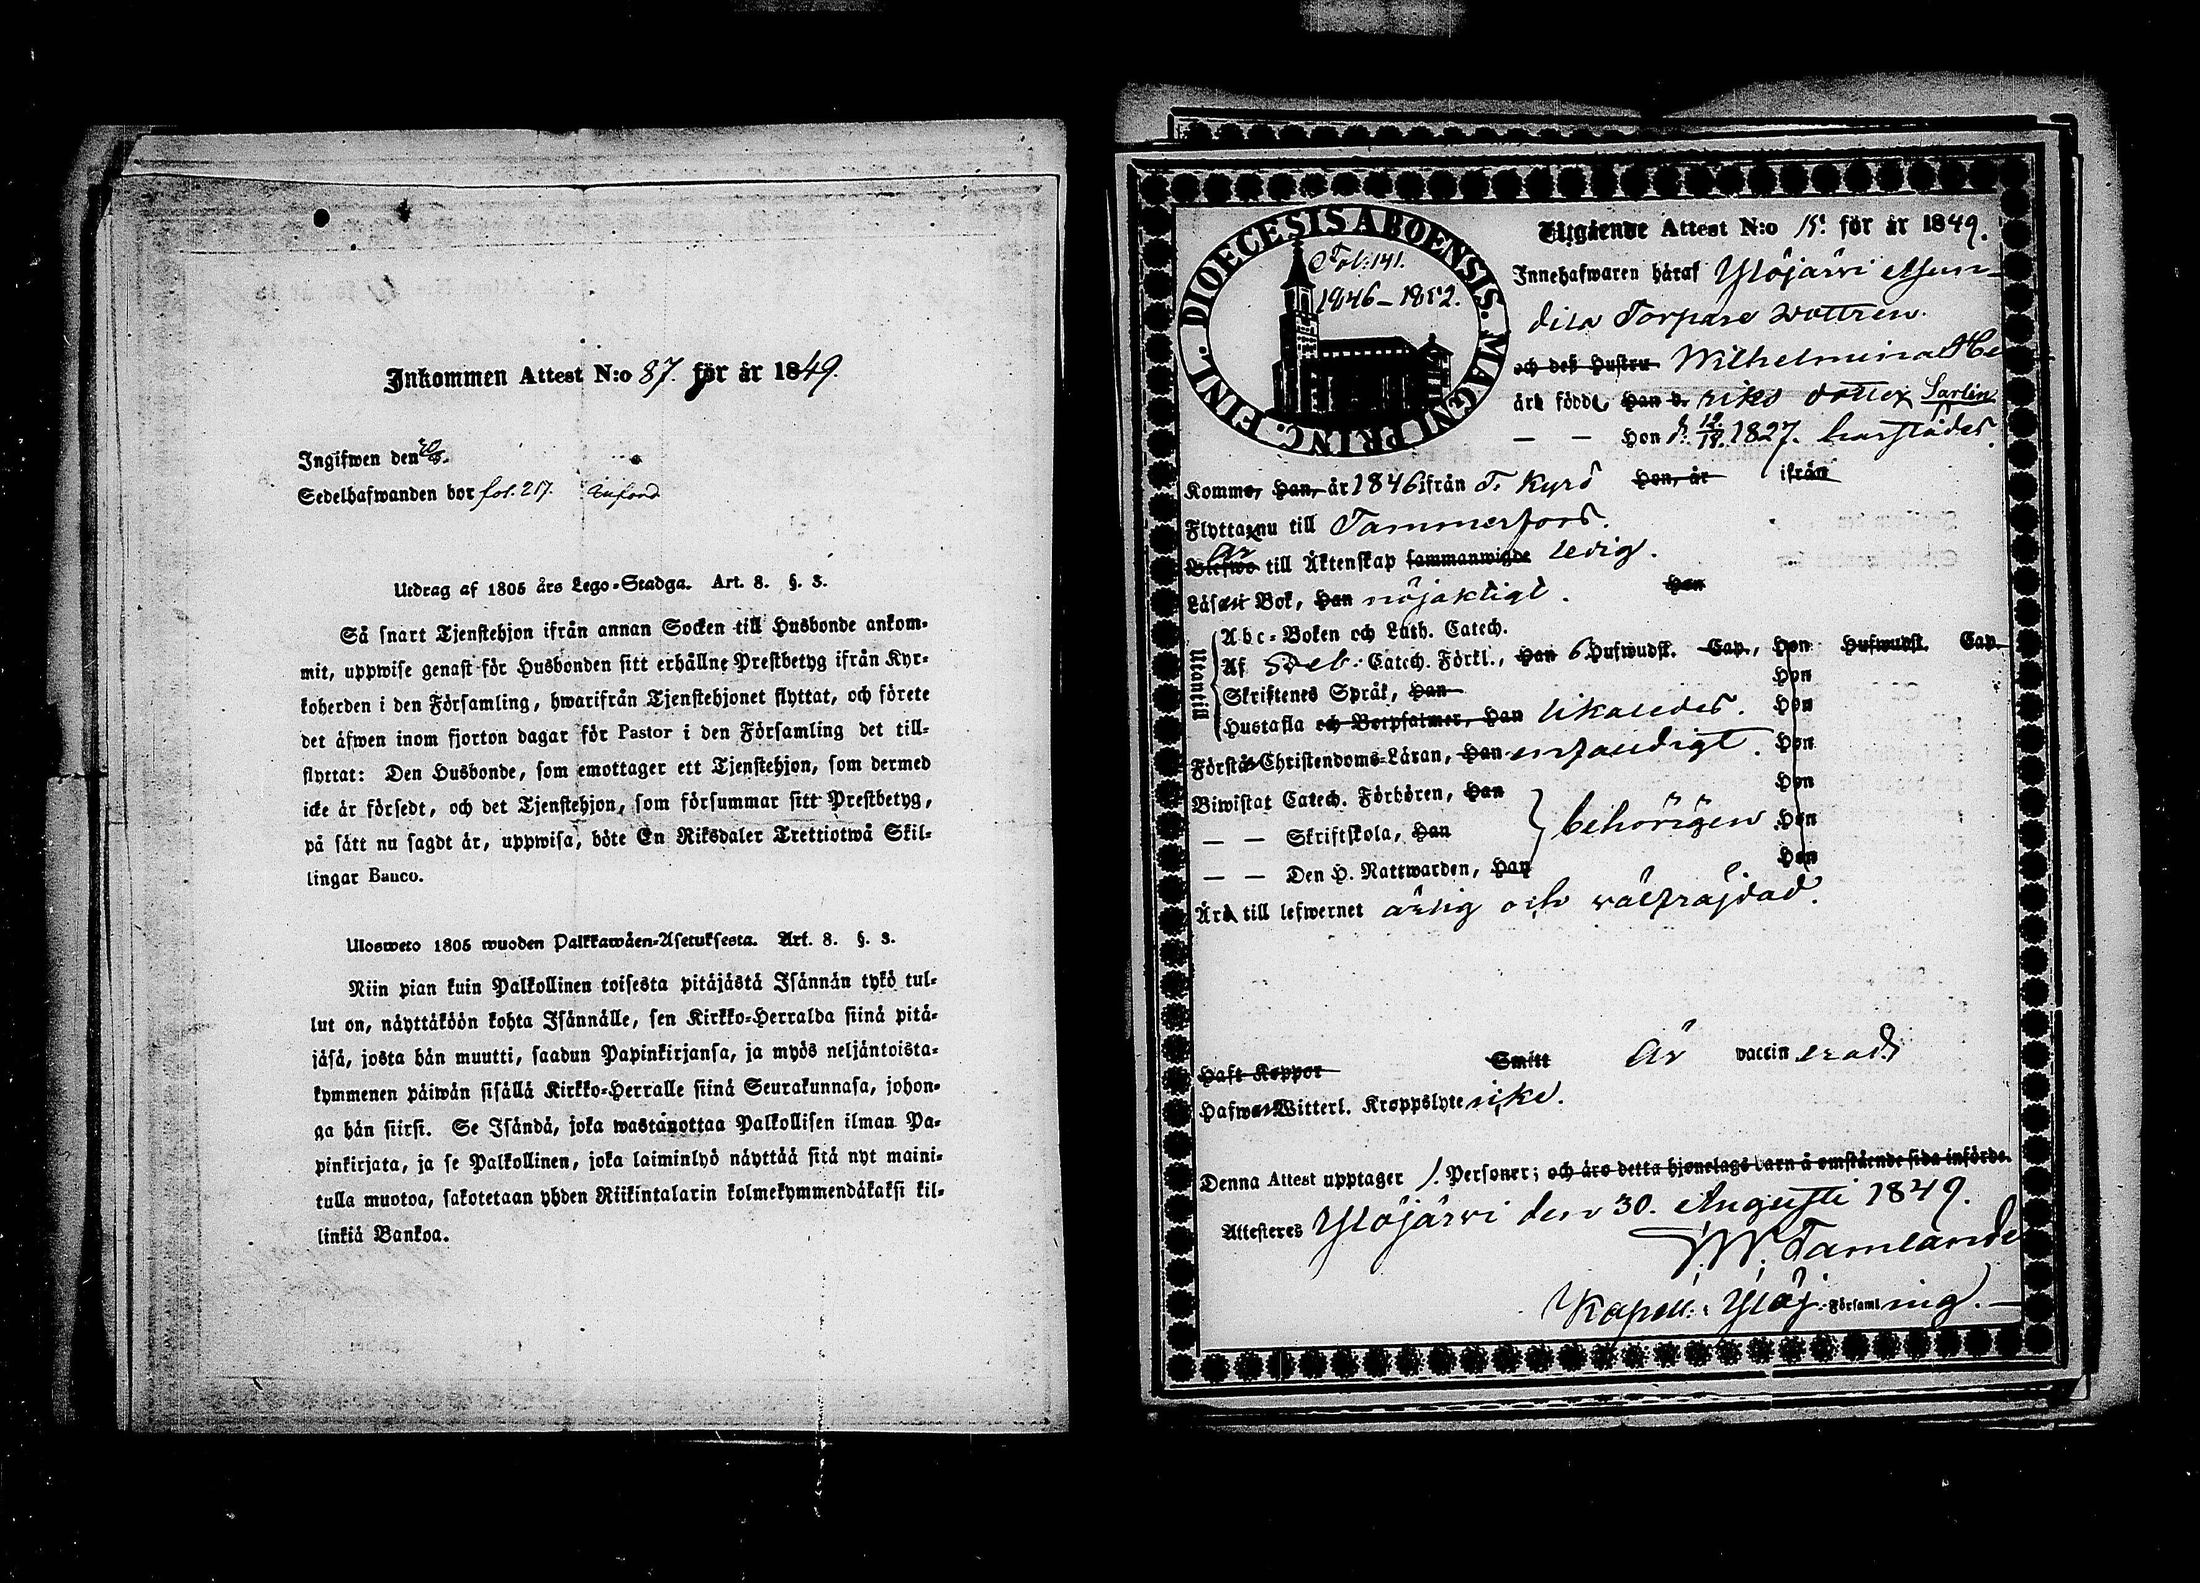 Inkommen Attest N:o 87. för år 1849.
Ingifwen den
Sedelhafwanden bor fol. 217.
Utdrag af 1805 års Lego-Stadga. Art. 8. §. 3.
Så snart Tjenstehjon ifrån annan Socken till Husbonde ankom-
mit, uppwise genast för Husbonden sitt erhållne Prestbetyg ifrån Kyr-
koherden i den Församling, hwarifrån Tjenstehjonet flyttat, och förete
det äfwen inom fjorton dagar för Pastor i den Församling det till-
flyttat: Den Husbonde, som emottager ett Tjenstehjon, som dermed
icke är försedt, och det Tjenstehjon, som försummar sitt Prestbetyg,
på sätt nu sagdt är, uppwisa, böte En Riksdaler Trettiotwå Skil-
lingar Banco.
Ulosweto 1805 wuoden Palkkawäen-Asetuksesta. Art. 8. §. 3.
Niin pian kuin Palkollinen toisesta pitäjästä Isännän tykö tul-
lut on, näyttäköön kohta Isännälle, sen Kirkko-Herralda siinä pitä-
jäsä, josta hän muutti, saadun Papinkirjansa, ja myös neljäntoista-
kymmenen päiwän sisällä Kirkko-Herralle siinä Seurakunnasa, johon-
ga hän siirsi. Se Isändä, joka wastanottaa Palkollisen ilman Pa-
pinkirjata, ja se Palkollinen, joka laiminlyö näyttää sitä nyt maini-
tulla muotoa, sakotetaan yhden Riikintalarin kolmekymmendäkaksi kil-
linkiä Bankoa.
DIOECESIS ABOENSIS. MAGNI PRINC. FINL.
Fol: 141.
1846-1852.
Utgående Attest N:o 15. för år 1849.
Innehafwaren häraf Ylöjärvi
Torpare dottren
och deß Hustru Wilhelmina He
äro född, Han d. riks dotter Sarlin
— — Hon d. 12/12. 1827. härstädes.
Komme, Han, år 1846 ifrån T. Kyrö Hon, år ifrån
Flytta nu till Tammerfors.
Är
Blefwo till Äktenskap sammanwigde ledig.
Läsa i Bok, Han nöjaktigt. Hon
Utantill
Abc-Boken och Luth. Catech.
Af Sveb. Catech. Förkl., Han 6 Hufwudst. Cap., Hon Hufwudst. Cap.
Skriftenes Språk, Han Hon
Hustafla och Botpsalmer, Han likaledes. Hon
Förstå Christendoms-Läran, Han enfaldigt. Hon
Biwistat Catech. Förhören, Han Hon
— — Skriftskola, Han behörigen Hon
— — Den H. Nattwarden, Han Hon
Är till lefwernet ärlig och välfräjdad.
Haft Koppor Smitt Är vaccinerad.
Hafwa Witterl. Kroppslyte icke.
Denna Attest upptager 1. Personer; och äro detta hjonelags barn å omstående sida införde.
Attesteres Ylöjärvi den 30. Augusti 1849.
Tamlander
Kapell: i Ylöj. Församling.—